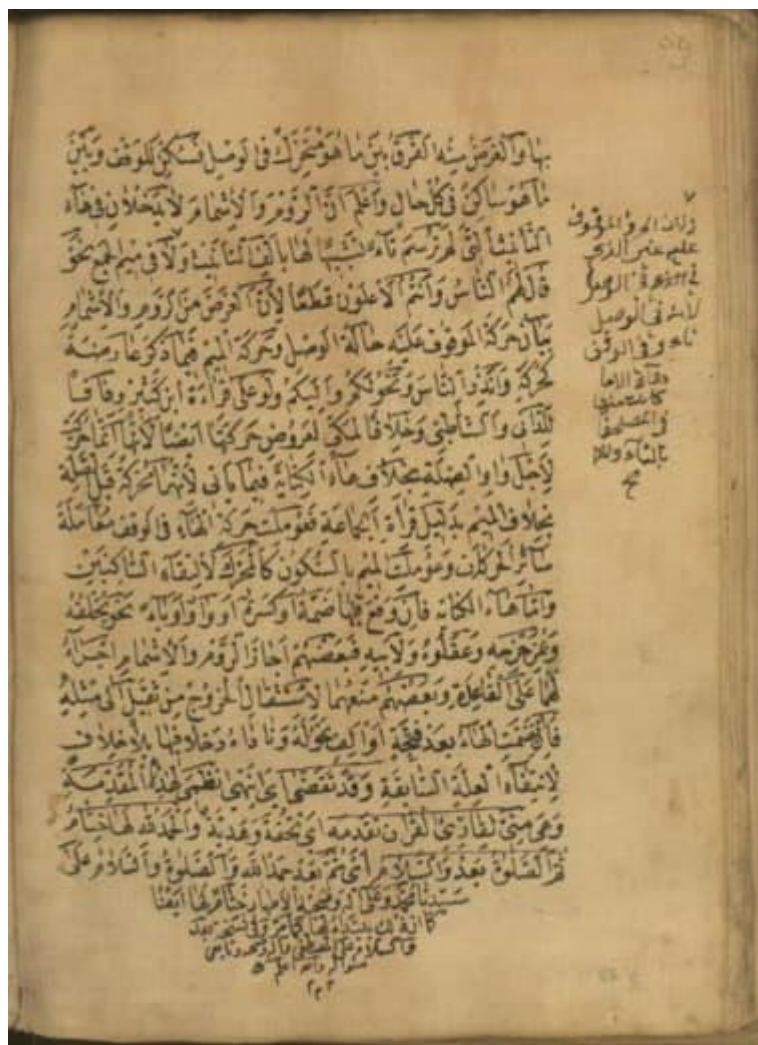 بها والغرض منه الفرق بين ما هو متحرك في الوصل فسكن للوقف وبين
ما هو ساكن في كل حال واعلم ان الروم والاشمام لا يدخلان في هاء
التأنيث التي لم ترسم تاء تشبيها لها بألف التأنيث ولا في ميم الجمع نحو
قال لهم الناس وانتم الاعلون قطعا لأن الغرض من الروم والاشمام
بيان حركة الموقوف عليه حالة الوصل وحركة الميم فيما ذكر عارضة
كحركة وانذر الناس ونحو لكم واليكم ولو على قراءة ابن كثير وفاقا
للداني والشاطبي وخلافا لمكي لعروض حركتها ايضا لأنها انما حركت
لأجل واو الصلة بخلاف هاء الكناية فيما يأتي لأنها محركة قبل الصلة
بخلاف الميم بدليل قراءة الجماعة فعوملت حركة الهاء في الوقف معاملة
سائر الحركات وعوملت الميم بالسكون كالمحرك لالتقاء الساكنين
واما هاء الكناية فان وقع قبلها ضمة او كسرة او واو او ياء نحو يخلفه
وبمزحزحه وعقلوه ولأبيه فبعضهم اجاز الروم والاشمام اجراء
لهما على القاعدة وبعضهم منعهما لاستثقال الخروج من ثقيل الى مثله
فان انفتحت الهاء بعد فتحة او الف نحو له وناداه دخلا فيها بلا خلاف
لانتفاء العلة السابقة وقد تقضى اي انتهى نظمي لهذه المقدمة
وهي مني لقارئ القرآن تقدمه اي تحفة وهدية والحمد لله لها ختام
ثم الصلوة بعد والسلام اي ثم بعد حمد الله والصلوة والسلام على
سيدنا محمد وعلى آله وصحبه الاطهار ختام لها ايضا
عليه غير الذي
في الوصل
لأنه في الوصل
تاء وفي الوقف